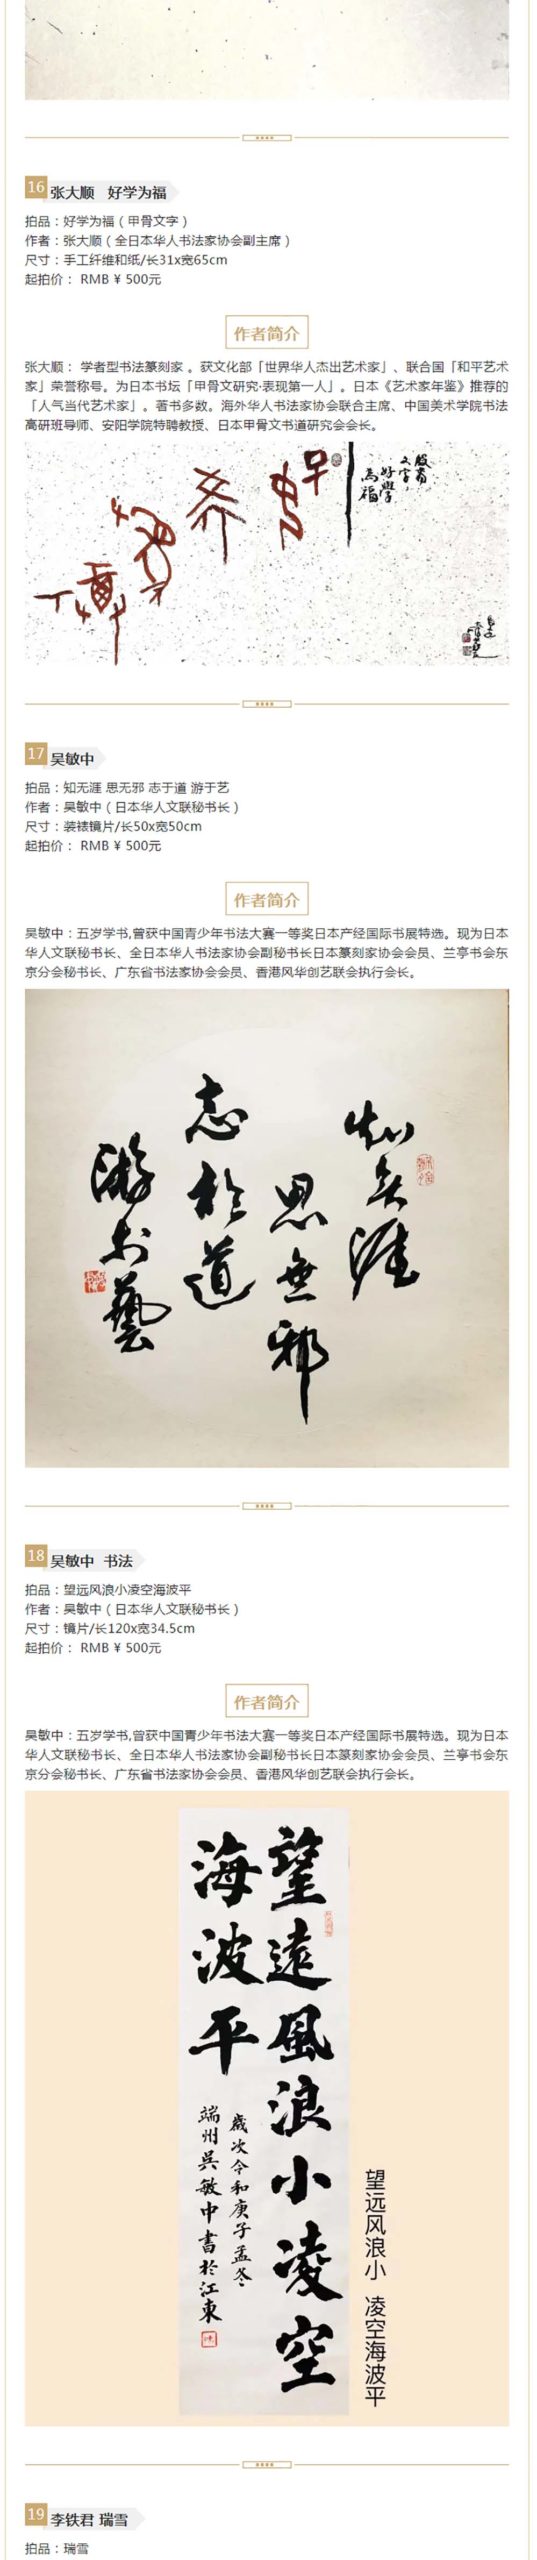 16 张大顺 好学为福
拍品：好学为福（甲骨文字）
作者：张大顺（全日本华人书法家协会副主席）
尺寸：手工纤维和纸/长31x宽65cm
起拍价： RMB ¥ 500元
作者简介
张大顺： 学者型书法篆刻家 。获文化部「世界华人杰出艺术家」、联合国「和平艺术
家」荣誉称号。为日本书坛「甲骨文研究·表现第一人」。日本《艺术家年鉴》推荐的
「人气当代艺术家」。著书多数。海外华人书法家协会联合主席、中国美术学院书法
高研班导师、安阳学院特聘教授、日本甲骨文书道研究会会长。
文字，
好学
為福
17 吴敏中
拍品：知无涯 思无邪 志于道 游于艺
作者：吴敏中（日本华人文联秘书长）
尺寸：装裱镜片/长50x宽50cm
起拍价： RMB ¥ 500元
作者简介
吴敏中：五岁学书,曾获中国青少年书法大赛一等奖日本产经国际书展特选。现为日本
华人文联秘书长、全日本华人书法家协会副秘书长日本篆刻家协会会员、兰亭书会东
京分会秘书长、广东省书法家协会会员、香港风华创艺联会执行会长。
知无涯
思無邪
志於道
游于藝
18 吴敏中 书法
拍品：望远风浪小凌空海波平
作者：吴敏中（日本华人文联秘书长）
尺寸：镜片/长120x宽34.5cm
起拍价： RMB ¥ 500元
作者简介
吴敏中：五岁学书,曾获中国青少年书法大赛一等奖日本产经国际书展特选。现为日本
华人文联秘书长、全日本华人书法家协会副秘书长日本篆刻家协会会员、兰亭书会东
京分会秘书长、广东省书法家协会会员、香港风华创艺联会执行会长。
望远风浪小 凌空海波平
望遠風浪小凌空
海波平
歲次令和庚子孟冬
端州吳敏中書於江東
19 李铁君 瑞雪
拍品：瑞雪